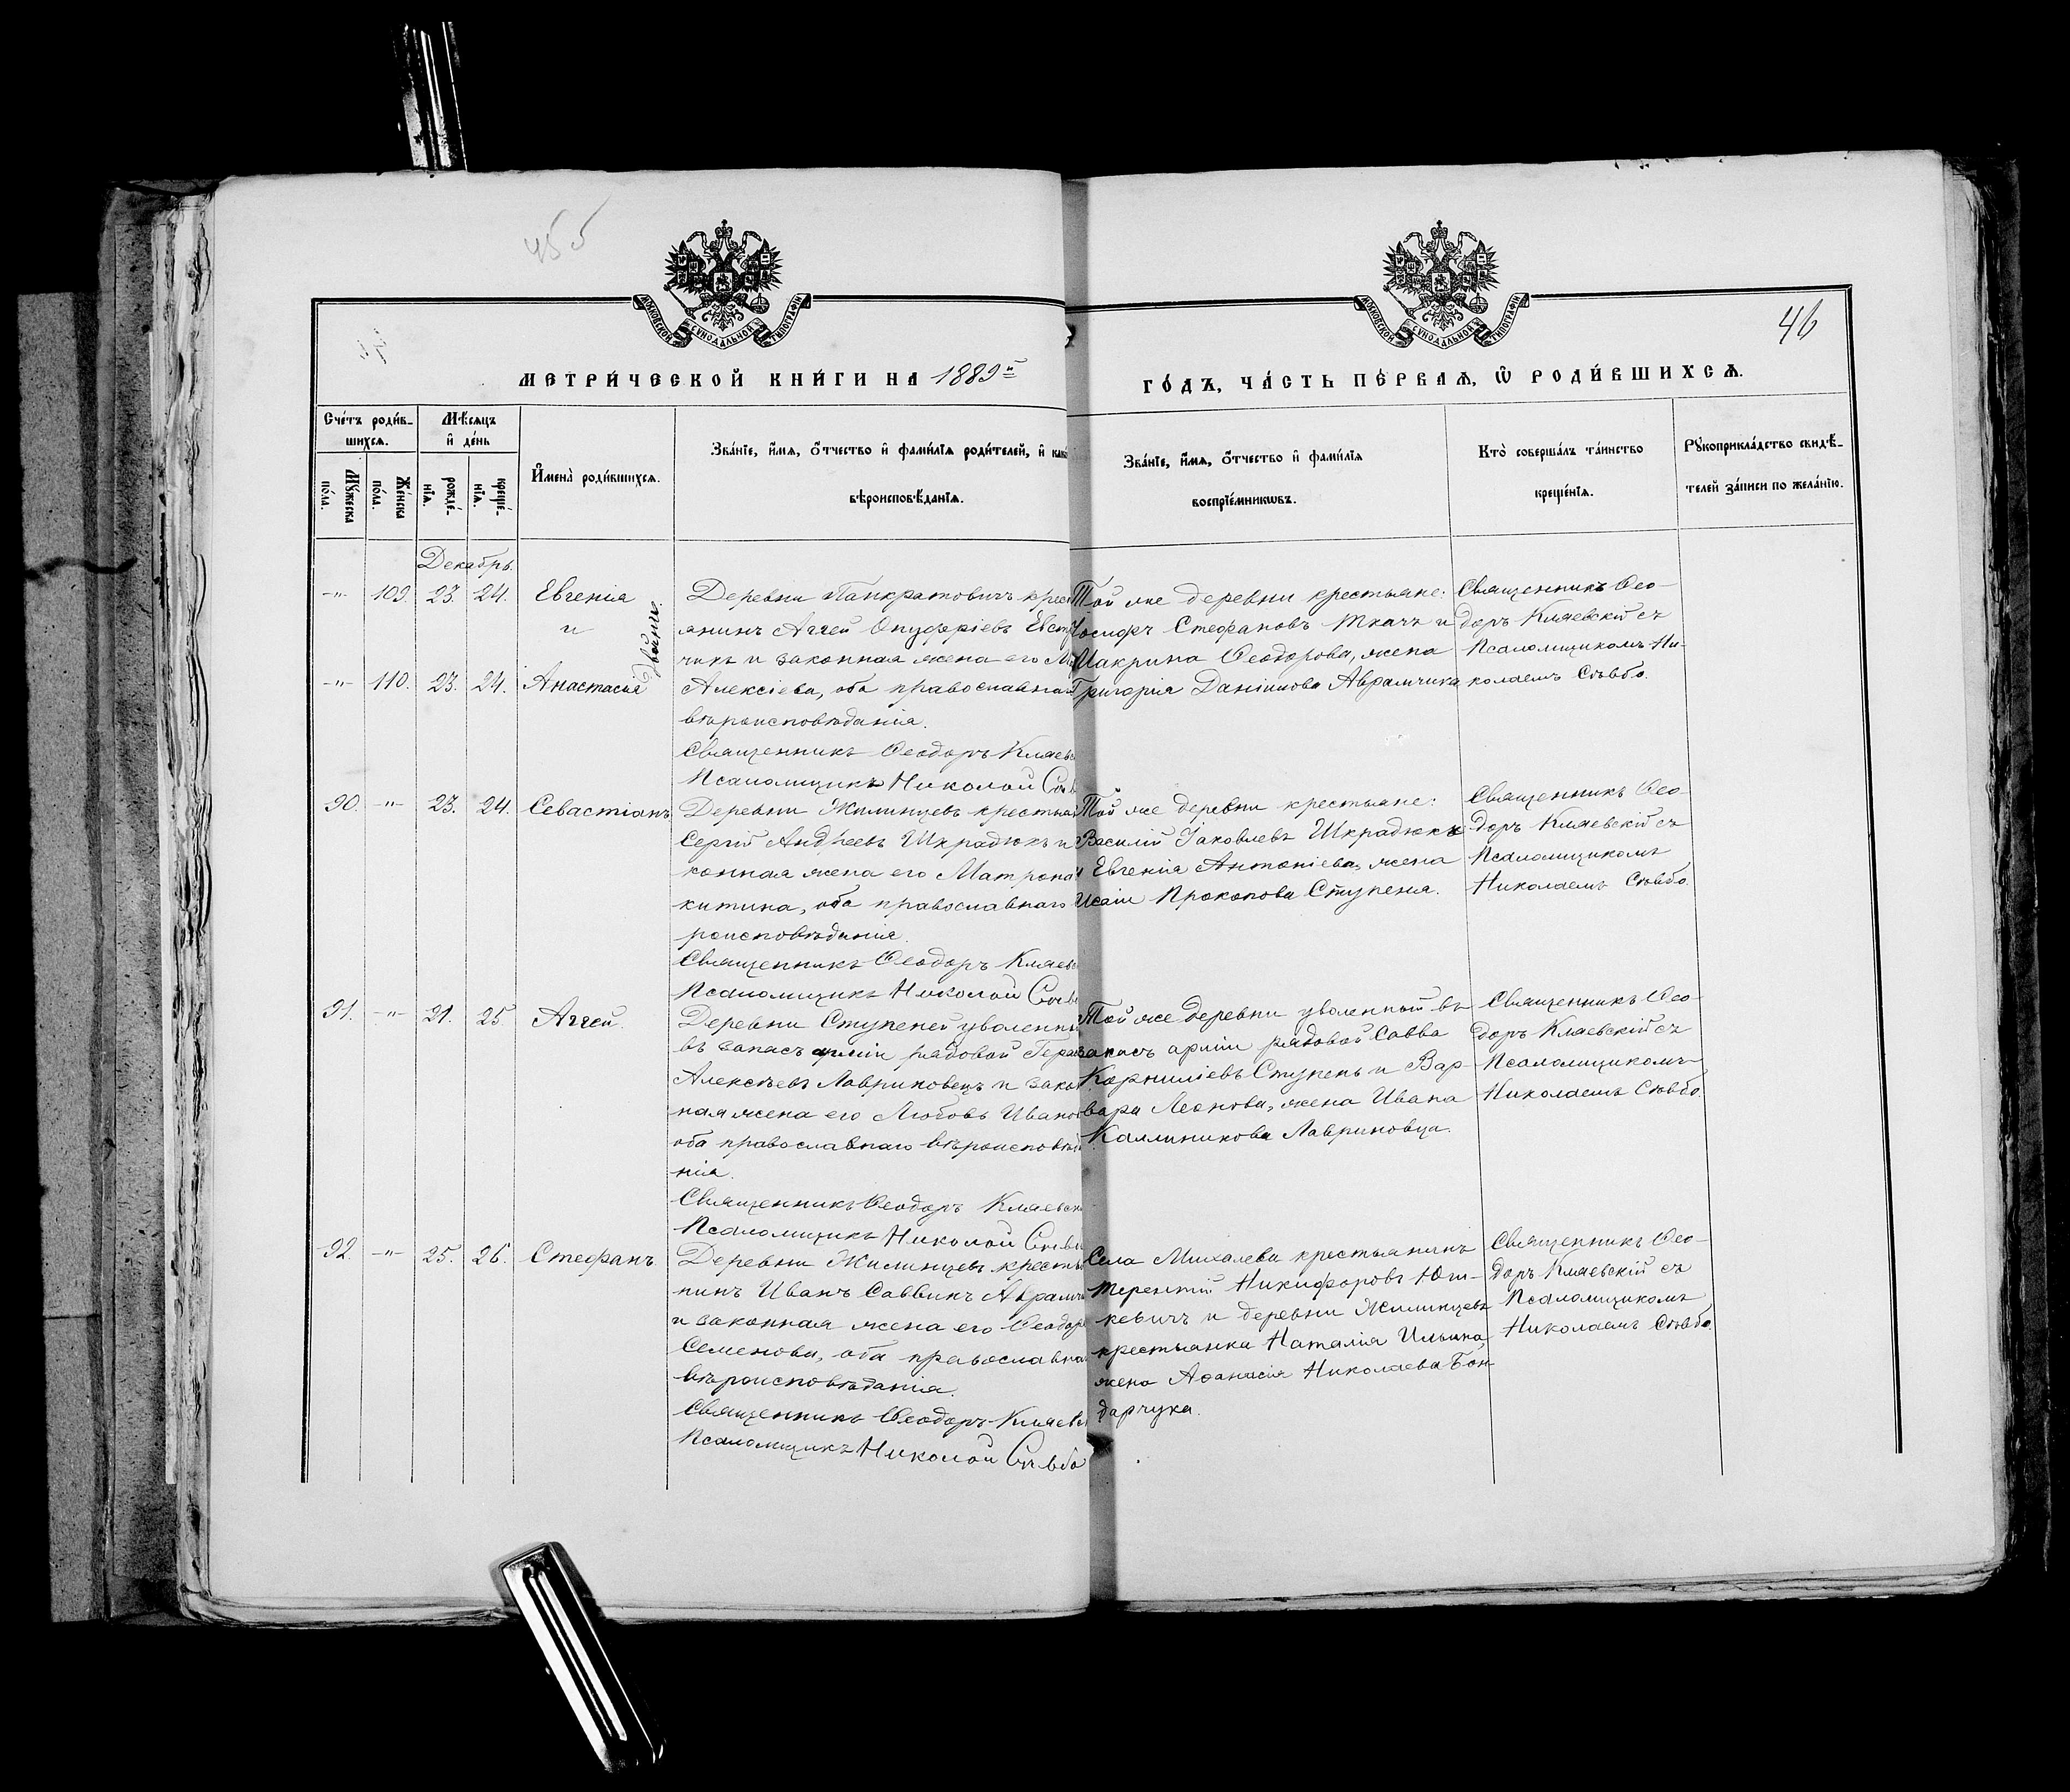 455
46
МОСКОВСКОЙ СѴНОДАЛЬНОЙ ТИПОГРАФІИ
МОСКОВСКОЙ СѴНОДАЛЬНОЙ ТИПОГРАФІИ
МЕТРИ́ЧЕСКОЙ КНИ́ГИ НА 1889й
ГО́ДЪ, ЧА́СТЬ ПЕ́РВАѦ, Ѡ҆ РОДИ́ВШИХСѦ.
Сче́тъ роди́в-
шихсѧ.
Мꙋ́жеска
по́ла.
Же́нска
по́ла.
Мѣ́сѧцъ
и҆ де́нь
рожде́-
нїѧ.
креще́-
нїѧ.
И҆мена̀ роди́вшихсѧ.
Зва́нїе, и҆́мѧ, ѻ҆́тчество и҆ фами́лїѧ роди́телей, и҆ как
вѣроисповѣ́данїѧ.
Зва́нїе, и҆́мѧ, ѻ҆́тчество и҆ фами́лїѧ
воспрїе́мникѡвъ.
Кто̀ соверша́лъ та́инство
креще́нїѧ.
Рꙋкоприкла́дство свидѣ́-
телей за́писи по жела́нїю.
Декабрь.
-"- 109. 23. 24. Евгенія
и
двойни.
-"- 110. 23. 24. Анастасія
Деревни Панкратовичъ крес
янинъ Аггей Онуфріевъ Евст
чикъ и законная жена его М
Алексіева, оба православнаг
вѣроисповѣданія.
Священникъ Ѳеодоръ Кляев
Псаломщикъ Николай Сѣв
Той же деревни крестьяне:
Іосифъ Стефановъ Ткачъ и
Макрина Ѳеодорова, жена
Григорія Даніилова Аврамчика
Священникъ Ѳео-
доръ Кляевскій съ
Псаломщикомъ Ни-
колаемъ Сѣвбо.
90. -"- 23. 24. Севастіанъ
Деревни Жилинцевъ крестья
Сергій Андреевъ Шкрадюкъ и
конная жена его Матрона
китина, оба православнаго
роисповѣданія.
Священникъ Ѳеодоръ Кляев
Псаломщикъ Николай Сѣв
Той же деревни крестьяне:
Василій Іаковлевъ Шкрадюкъ
и Евгенія Антоніева, жена
Исаіи Прокопова Ступеня.
Священникъ Ѳео-
доръ Кляевскій съ
Псаломщикомъ
Николаемъ Сѣвбо.
91. -"- 21. 25. Аггей.
Деревни Ступеней уволенны
въ запасъ арміи рядовой Гера
Алексѣевъ Лавриновецъ и зако
ная жена его Любовь Ивано
оба православнаго вѣроисповѣд
нія.
Священникъ Ѳеодоръ Кляевск
Псаломщикъ Николай Сѣвб
Той же деревни уволенный въ
запасъ арміи рядовой Савва
Корниліевъ Ступень и Вар-
вара Леонова, жена Ивана
Каллиникова Лавриновца.
Священникъ Ѳео-
доръ Кляевскій съ
Псаломщикомъ
Николаемъ Сѣвбо.
92. -"- 25. 26. Стефанъ.
Деревни Жилинцевъ крестья
нинъ Иванъ Саввинъ Аврамч
и законная жена его Ѳеодор
Семенова, оба православна
вѣроисповѣданія.
Священникъ Ѳеодоръ Кляевс
Псаломщикъ Николай Сѣвбо
Села Михалева крестьянинъ
Терентій Никифоровъ Юш-
кевичъ и деревни Жилинцевъ
крестьянка Наталія Ильина,
жена Аѳанасія Николаева Бон-
дарчука.
Священникъ Ѳео-
доръ Кляевскій съ
Псаломщикомъ
Николаемъ Сѣвбо.